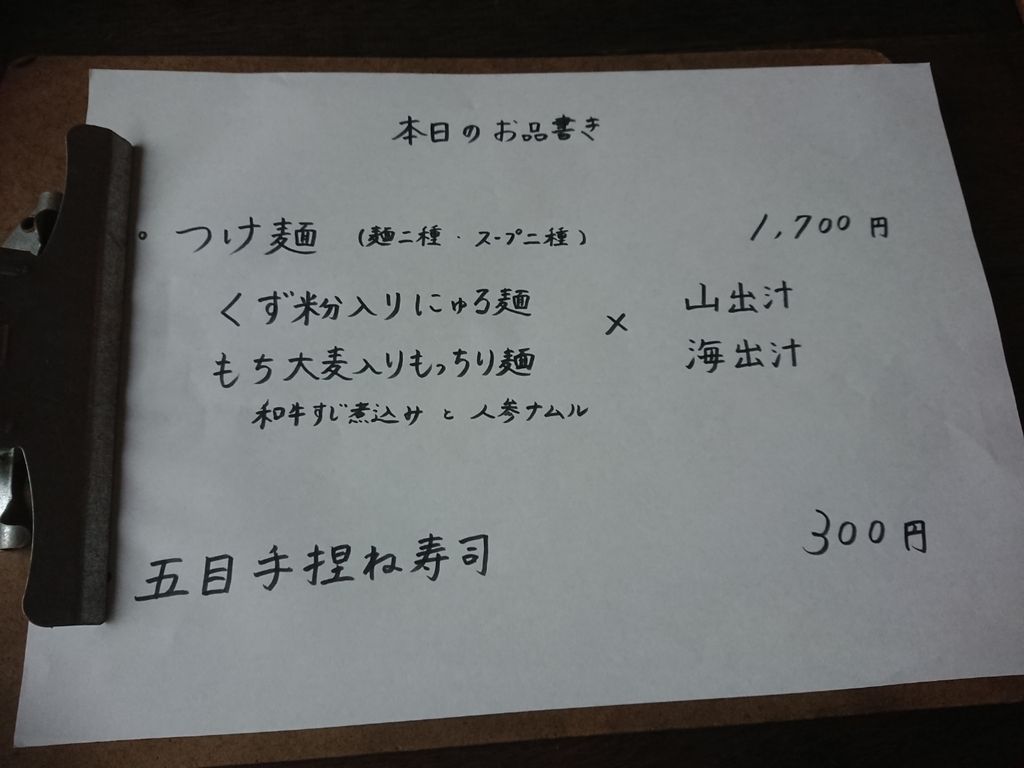 本日のお品書き
。つけ麺 (麺二種・スープ二種) 1,700円
くず粉入りにゅる麺 × 山出汁
もち大麦入りもっちり麺 海出汁
和牛すじ煮込みと人参ナムル
五目手捏ね寿司 300円